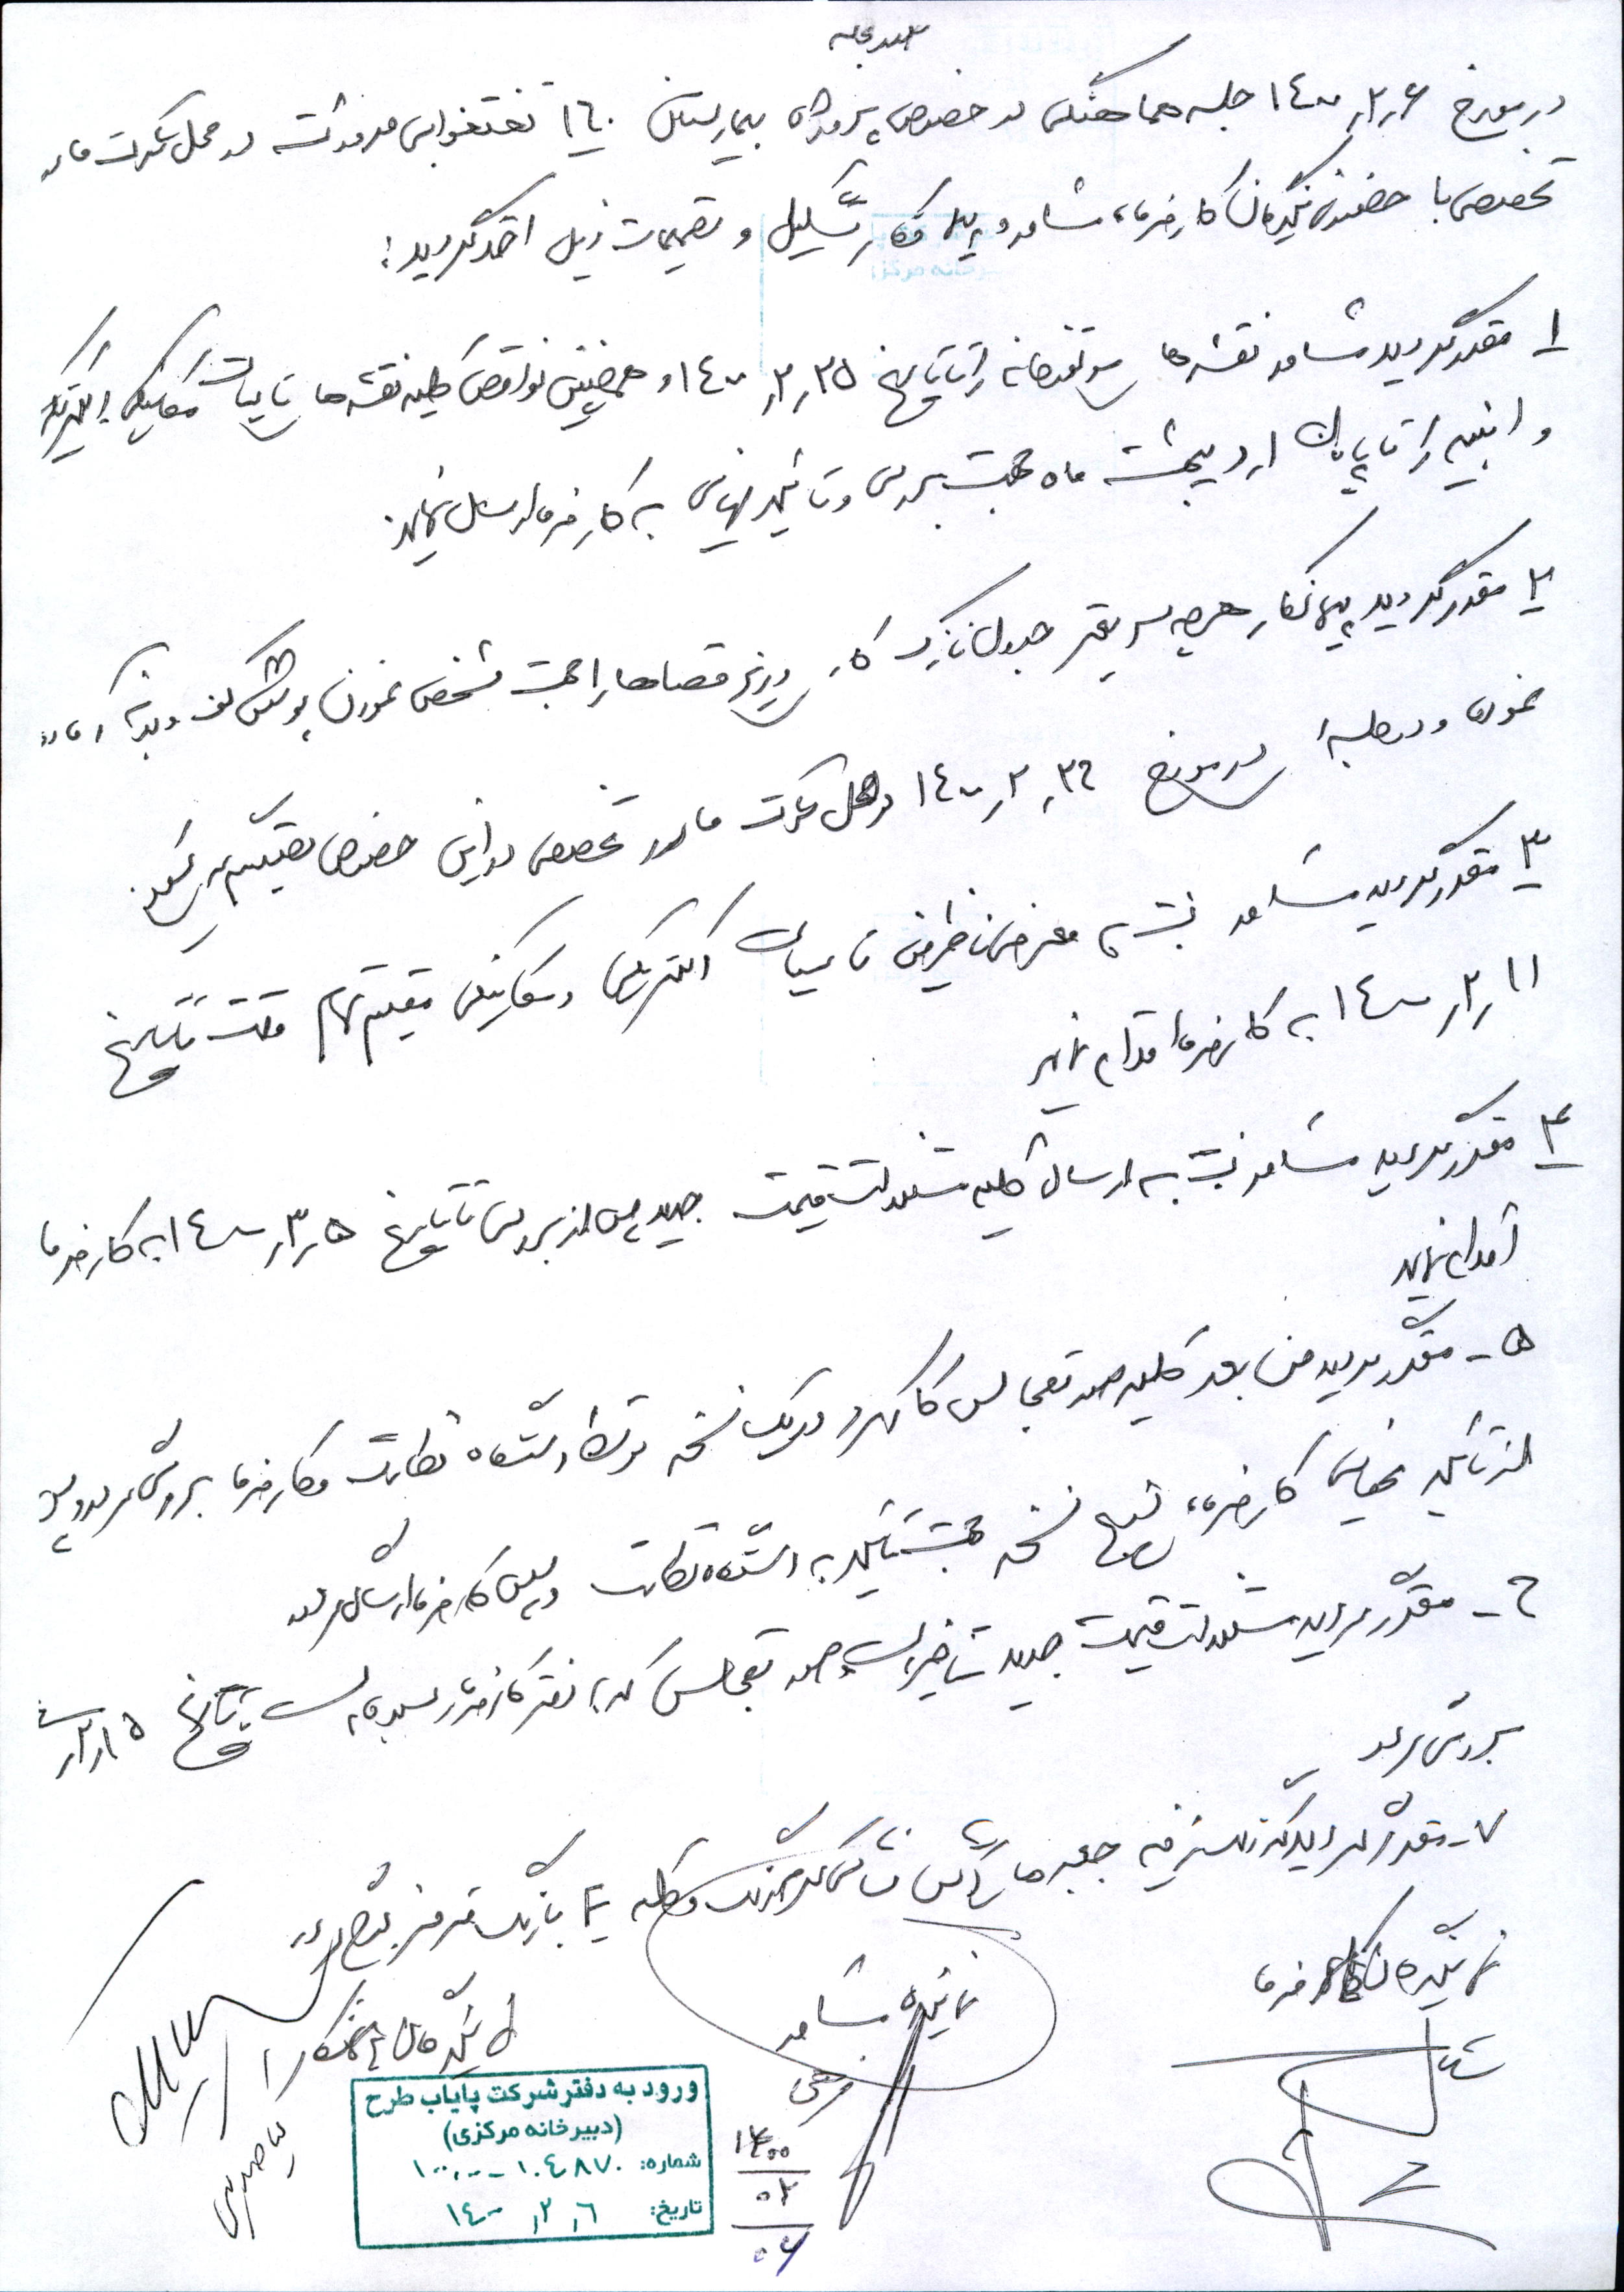 صورتجلسه
در مورخ ۱۴۰۰٫۲٫۶ جلسه هماهنگی در خصوص پروژه بیمارستان ۱۶۰ تختخوابی مرودشت در محل شرکت مادر
تخصصی با حضور نمایندگان کارفرما، مشاور و پیمانکار تشکیل و تصمیمات ذیل اخذ گردید:
۱ مقرر گردید مشاور نقشه‌های موتورخانه را تا تاریخ ۱۴۰۰٫۲٫۲۵ و همچنین نواقص کلیه نقشه‌های تاسیسات مکانیکی، الکتریکی
و ابنیه را تا پایان اردیبهشت ماه جهت بررسی و تائید نهایی به کارفرما ارسال نماید.
۲ مقرر گردید پیمانکار هرچه سریعتر جدول نازک کاری ریز فضاها را جهت مشخص نمودن پوشش کف و بدنه آماده
نموده و در جلسه‌ای در مورخ ۱۴۰۰٫۲٫۲۶ در محل شرکت مادر تخصصی در این خصوص تصمیم گیری شود.
۳ مقرر گردید مشاور نسبت به معرفی ناظرین تاسیسات الکتریکی و مکانیکی مقیم تمام وقت تا تاریخ
۱۴۰۰٫۲٫۱۱ به کارفرما اقدام نماید
۴ مقرر گردید مشاور نسبت به ارسال کلیه دستورکارهای قیمت جدید پس از بررسی تا تاریخ ۱۴۰۰٫۳٫۵ به کارفرما
اقدام نماید
۵- مقرر گردید من بعد کلیه صورتمجالس کارکرد در یک نسخه توسط دستگاه نظارت و کارفرما بررسی گردد و پس
از تائید نهایی کارفرما، پنج نسخه جهت تائید به دستگاه نظارت و سپس کارفرما ارسال گردد
۶- مقرر گردید قیمت جدید و صورتمجالس که به دفتر کارفرما رسیده است تا تاریخ ۱۵٫۲
بررسی گردد
۷- مقرر گردید که جعبه‌های آتش نشانی
نماینده کارفرما
نماینده مشاور
نمایندگان پیمانکار
۱۴۰۰
۰۲
۰۶
ورود به دفتر شرکت پایاب طرح
(دبیرخانه مرکزی)
شماره: ۱۰۴۸۷۰ - ۱۰۰٫۰۰
تاریخ: ۱۴۰۰٫۲٫۶